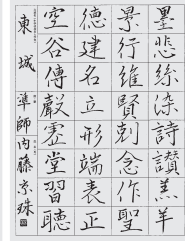 墨悲絲染詩讃羔羊
景行維賢剋念作聖
德建名立形端表正
空谷傳聲虛堂習聽
東城 準師 内藤京珠